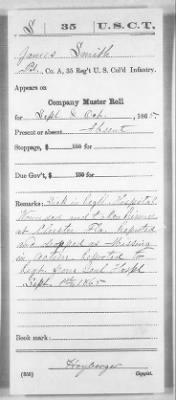 S 35 U.S.C.T.
James Smith
Pt., Co. A, 35 Reg't U. S. Col'd Infantry.
Appears on
Company Muster Roll
for Sept & Oct, 1865
Present or absent Absent
Stoppage, $ 100 for
Due Gov't, $ 100 for
Remarks: Sick in Regtl Hospital
Wounded and taken Prisoner
at Fla. reported
and dropped as Missing
in Action. Reported to
Regt from Genl Hospl
Sept 1865
Book mark:
Copyist.